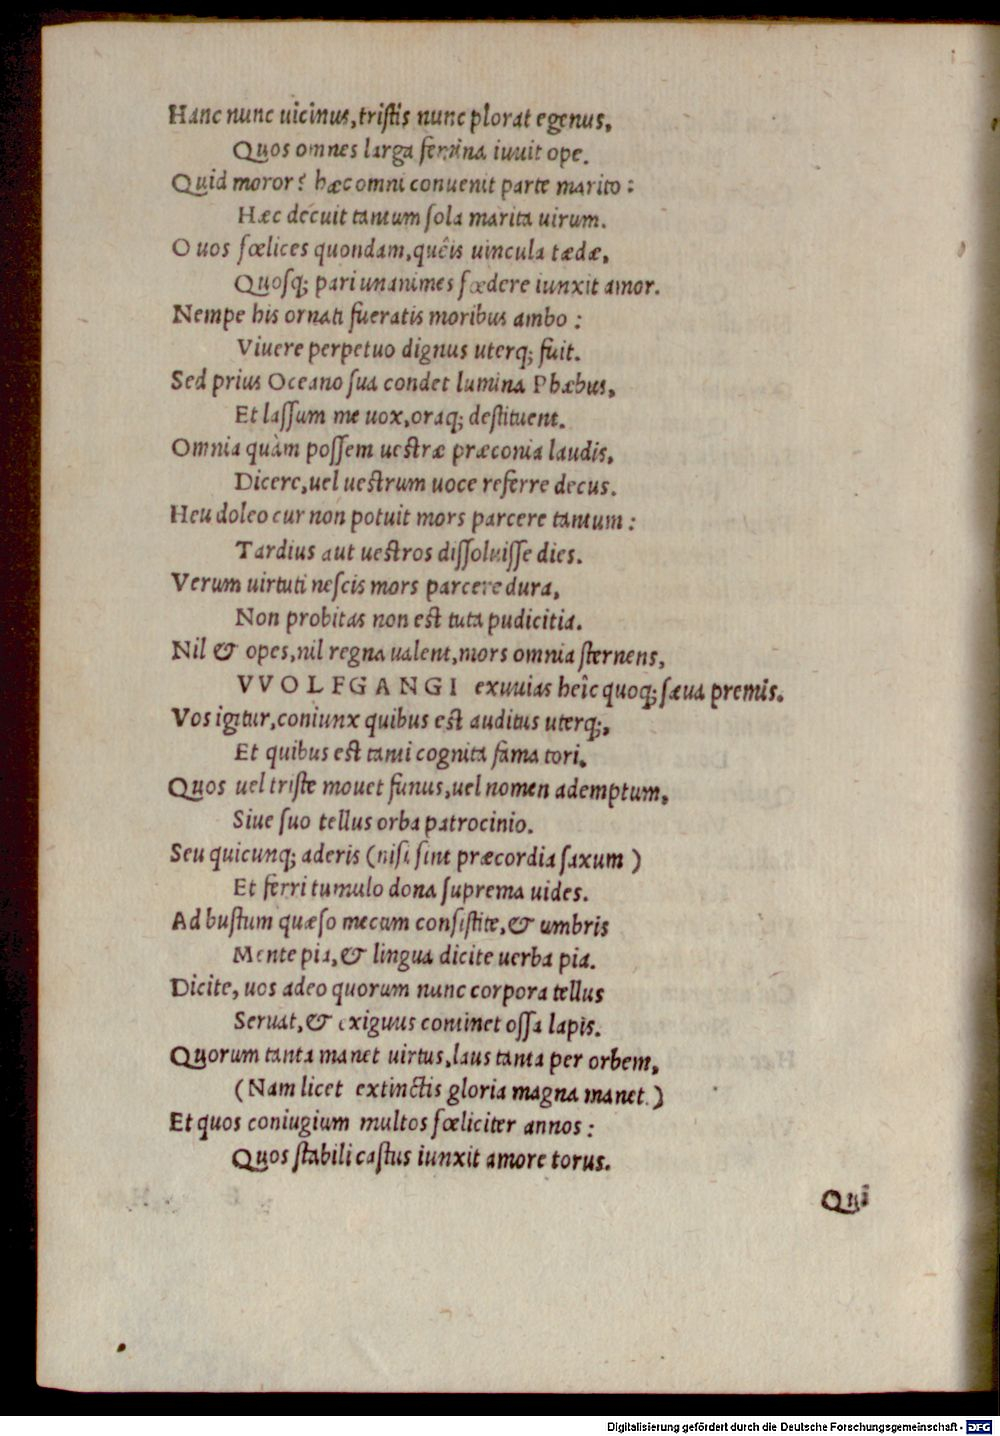 Hanc nunc uicinus, tristis nunc plorat egenus,
Quos omnes larga femina iuuit ope.
Quid moror? hæc omni conuenit parte marito:
Hæc decuit tantum sola marita uirum.
O uos fœlices quondam, quêis uincula tædæ,
Quosq; pari unanimes fœdere iunxit amor.
Nempe his ornati fueratis moribus ambo:
Viuere perpetuo dignus uterq; fuit.
Sed prius Oceano sua condet lumina Phœbus,
Et lassum me uox, oraq; destituent.
Omnia quàm possem uestræ præconia laudis,
Dicere, uel uestrum uoce referre decus.
Heu doleo cur non potuit mors parcere tantum:
Tardius aut uestros dissoluisse dies.
Verum uirtuti nescis mors parcere dura,
Non probitas non est tuta pudicitia.
Nil & opes, nil regna ualent, mors omnia sternens,
VVOLFGANGI exuuias heîc quoq; sæua premis.
Vos igitur, coniunx quibus est auditus uterq;,
Et quibus est tanti cognita fama tori,
Quos uel triste mouet funus, uel nomen ademptum,
Siue suo tellus orba patrocinio.
Seu quicunq; aderis (nisi sint præcordia saxum)
Et ferri tumulo dona suprema uides.
Ad bustum quæso mecum consistite, & umbris
Mente pia, & lingua dicite uerba pia.
Dicite, uos adeo quorum nunc corpora tellus
Seruat, & exiguus continet ossa lapis.
Quorum tanta manet uirtus, laus tanta per orbem,
(Nam licet extinctis gloria magna manet.)
Et quos coniugium multos fœliciter annos:
Quos stabili castus iunxit amore torus.
Qui
Digitalisierung gefördert durch die Deutsche Forschungsgemeinschaft - DFG